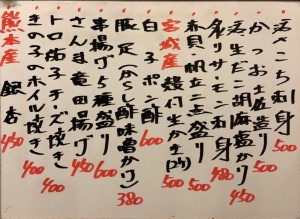 活さごち刺身 500
かつお土佐造り 500
活生だこ胡麻塩かり 450
炙りサーモン刺身 480
赤貝・帆立二点盛り 500
宮城産 殻付生かき(2ヶ) 500
白子ポン酢 600
豚足(からし酢味噌かけ) 380
串揚げ5種盛り 600
さんま竜田揚げ 450
トロ茄子チーズ焼き 400
きのこのホイル焼き 400
熊本産 銀杏 450